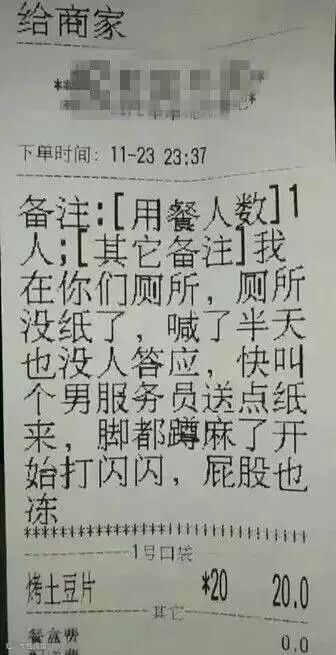 给商家
下单时间: 11-23 23:37
备注:[用餐人数]1
人;[其它备注]我
在你们厕所，厕所
没纸了，喊了半天
也没人答应，快叫
个男服务员送点纸
来，脚都蹲麻了开
始打闪闪，屁股也
冻
1号口袋
烤土豆片 *20 20.0
其它
餐盒费 0.0